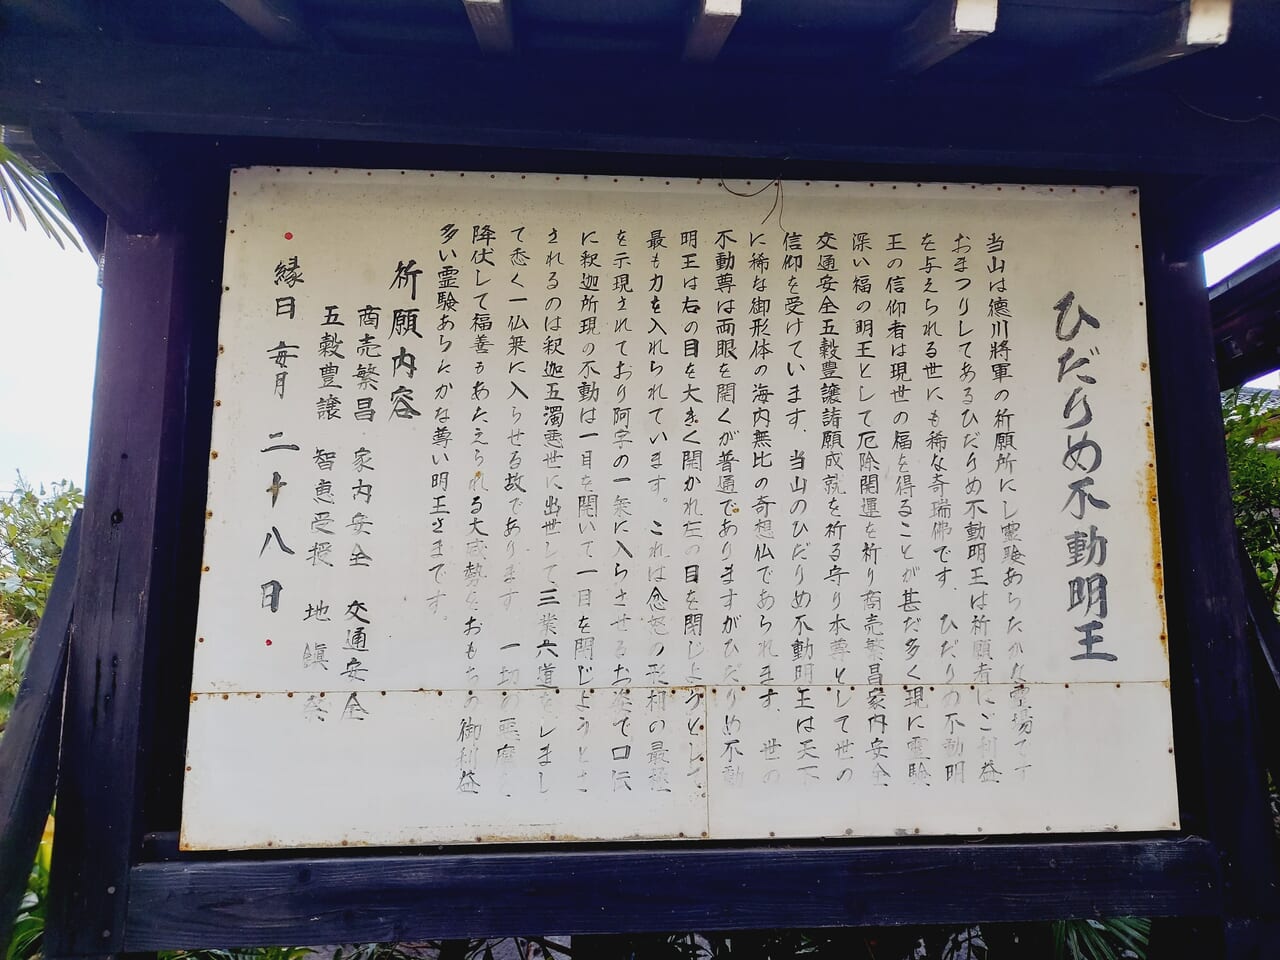 ひだりめ不動明王
当山は徳川將軍の祈願所にし霊験あらたかな霊場です
おまつりしてあるひだりめ不動明王は祈願者にご利益
を与えられる世にも稀な奇瑞佛です．ひだりの不動明
王の信仰者は現世の福を得ることが甚だ多く現に霊験
深い福の明王として厄除開運を祈り商売繁昌家内安全
交通安全五穀豊譲諸願成就を祈る守り本尊として世の
信仰を受けています．当山のひだりめ不動明王は天下
に稀な御形体の海内無比の奇想仏であられます．世の
不動尊は両眼を開くが普通でありますがひだりめ不動
明王は右の目を大きく開かれ左の目を閉じようとして
最も力を入れられています。これは忿怒の形相の最極
を示現されており阿字の一乗に入らさせるお姿で口伝
に釈迦所現の不動は一目を開いて一目を閉じようとさ
されるのは釈迦五濁悪世に出世して三業六道をしまし
て悉く一仏乗に入らせる故であります．一切の悪魔を
降伏して福善をあたえられる大威勢をおもちの御利益
多い霊験あらたかな尊い明王さまです．
祈願内容
商売繁昌 家内安全 交通安全
五穀豊譲 智恵受授 地鎮祭
縁日 毎月 二十八日